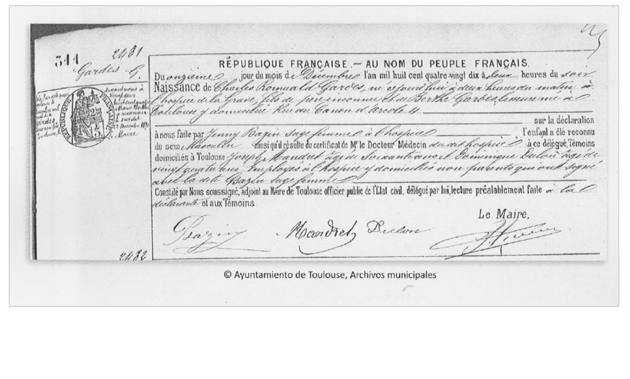 2481
Gardes G.
RÉPUBLIQUE FRANÇAISE.— AU NOM DU PEUPLE FRANÇAIS.
Du onzième jour du mois de Décembre l'an mil huit cent quatre vingt dix à deux heures du soir
Naissance de Charles Romuald Gardes, né ce jourd'hui à deux heures du matin, à
l'hospice de la Grave, fils de père inconnu et de Berthe Gardes,
Toulouse y domiciliée Rue du Canon d'Arcole 4
sur la déclaration
à nous faite par Jenny Bazin Sage femme à l'hospice l'enfant a été reconnu
du sexe Masculin ainsi qu'il résulte du certificat de Mr le Docteur Médecin dudit hospice à ce délégué, Témoins
domiciliés à Toulouse Joseph Mandret âgé de Soixante ans et Dominique Dulon âgé de
vingt quatre ans, Employés à l'hospice y domiciliés non parents qui ont signé
avec la dite Bazin Sage femme
Constaté par Nous soussigné, adjoint au Maire de Toulouse officier public de l'État civil, délégué par lui, lecture préalablement faite à la
déclarante et aux Témoins
Le Maire,
Bazin Mandret Dulon
2482
© Ayuntamiento de Toulouse, Archivos municipales